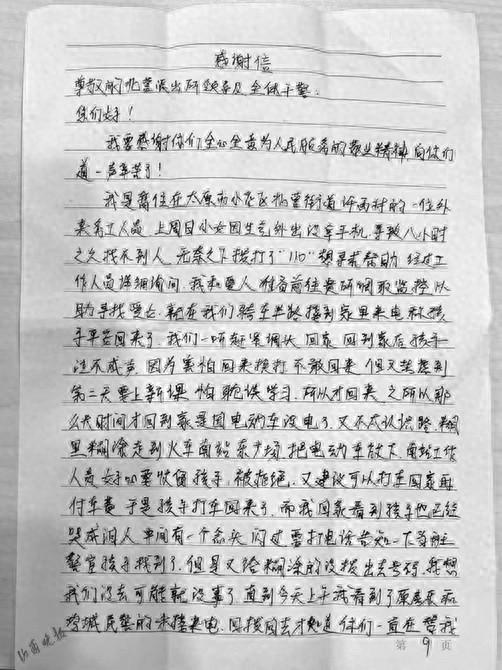 感谢信
尊敬的北营派出所领导及全体干警:
你们好!
我要感谢你们全心全意为人民服务的敬业精神,向你们
道一声辛苦了!
我是居住在太原市小店区北营街道许西村的一位外
来务工人员,上周日小女因生气外出没拿手机,导致八小时
之久找不到人,无奈之下拨打了"110"想寻求帮助,经过工
作人员详细询问,我和爱人准备前往贵所调取监控以
助寻找爱女,就在我们骑车半路接到家里来电称孩
子平安回来了,我们一听赶紧调头回家,回到家后孩子
泣不成声,因为害怕回来挨打不敢回来,但又差想到
第二天要上新课,怕耽误学习,所以才回来,之所以那
么长时间才回到家是因电动车没电了,又不太认识路,糊
里糊涂走到火车南站东广场,把电动车放下,南站工作
人员好心要收留孩子,被拒绝,又建议可以打车回家再
付车费,于是孩子打车回来了,而我回家看到孩子也已经
哭成泪人,中间有一个念头闪过要打电话告知一下当班
警官孩子找到了,但是又给糊涂的没拨出去号码,我想
我们没去可能就没事了,直到今天上午我看到了
民警的未接来电,回拨回去才知道你们一直在替我
第9页
山西晚报